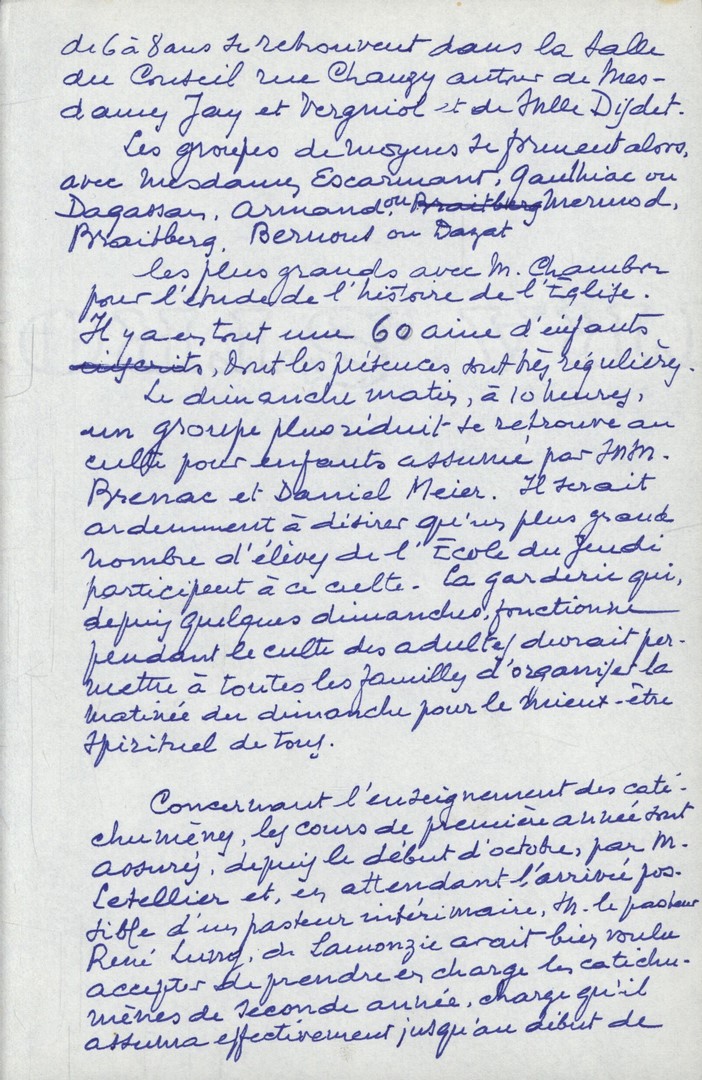 de 6 à 8 ans se retrouvent dans la salle
du Conseil rue Chanzy autour de Mes-
dames Jay et Vergniol et de Melle Dijdet.
Les groupes de moyens se forment alors,
avec Mesdames Escarmant, Gaulhiac ou
Dagassan, Armand, ou Braitberg Mermod,
Braitberg, Bernous ou Dazat
les plus grands avec M. Chambon
pour l'étude de l'histoire de l'Église.
Il y a en tout une 60aine d'enfants
inscrits, dont les présences sont très régulières.
Le dimanche matin, à 10 heures,
un groupe plus réduit se retrouve au
culte pour enfants assumé par MM.
Brenac et Daniel Meier. Il serait
ardemment à désirer qu'un plus grand
nombre d'élèves de l'École du Jeudi
participent à ce culte. La garderie qui,
depuis quelques dimanches, fonctionne
pendant le culte des adultes devrait per-
mettre à toutes les familles d'organiser la
matinée du dimanche pour le mieux-être
spirituel de tous.
Concernant l'enseignement des caté-
chumènes, les cours de première année sont
assurés, depuis le début d'octobre, par M.
Letellier et, en attendant l'arrivée pos-
sible d'un pasteur intérimaire, M. le pasteur
René Lung, de Lamonzie avait bien voulu
accepter de prendre en charge les catéchu-
mènes de seconde année, charge qu'il
assuma effectivement jusqu'au début de